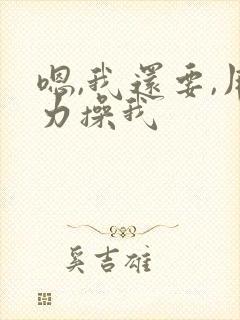 嗯,我還要,用
力操我
奚吉雄